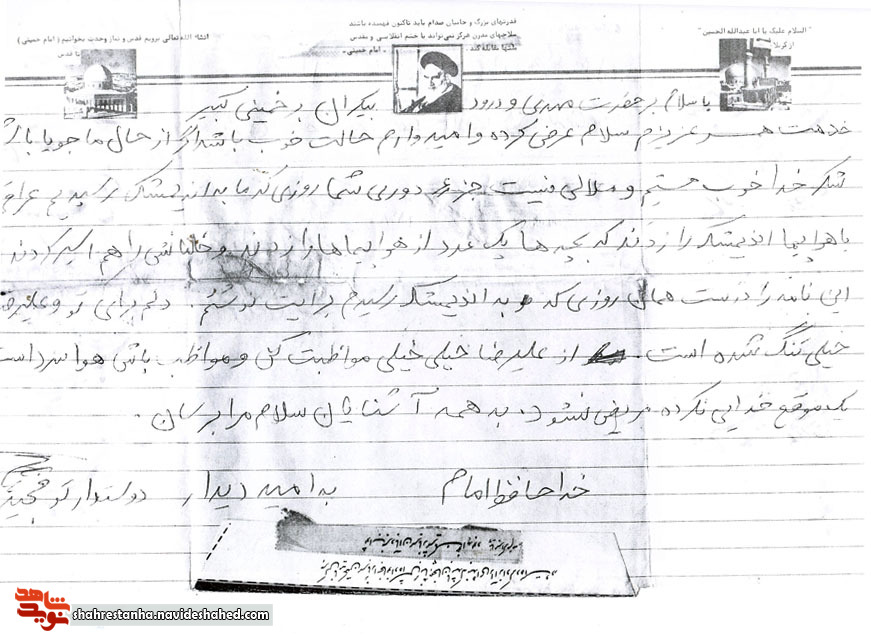 "السلام علیک یا ابا عبدالله الحسین"
از کربلا
قدرتهای بزرگ و حامیان صدام باید تاکنون فهمیده باشند
سلاحهای مدرن هرگز نمی‌تواند با خشم انقلابی و مقدس
ملتها مقابله کند. «امام خمینی»
انشاء الله تعالی برویم قدس و نماز وحدت بخوانیم (امام خمینی)
تا قدس
با سلام بر حضرت مهدی و درود بیکران بر خمینی کبیر
خدمت همسر عزیزم سلام عرض کرده و امیدوارم حالت خوب باشد اگر از حال ما جویا باشی
شکر خدا خوب هستیم و ملالی نیست جز دوری شما روزی که ما به اندیمشک رسیدیم عراق
با هواپیما اندیمشک را زدند که بچه ها یک عدد از هواپیماها را زدند و خلبانش را هم اسیر کردند
این نامه را درست همان روزی که به اندیمشک رسیدم برایت نوشتم. دلم برای تو و علیرضا
خیلی تنگ شده است. از علیرضا خیلی خیلی مواظبت کن و مواظب باش هوا سرد است
یک موقع خدایی نکرده مریض نشود. به همه آشنایان سلام مرا برسان.
خداحافظ امام به امید دیدار دوستدار تو
نوید شاهد
shahrestanha.navideshahed.com